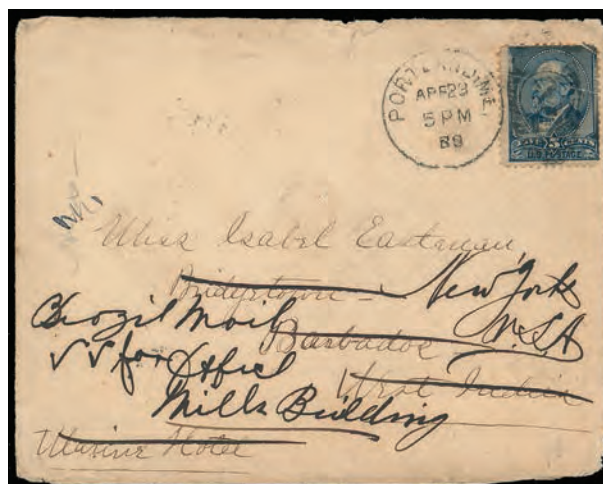 PORTLAND, ME.
APR 23
5 PM
89
U.S. POSTAGE
Miss Isabel Eastman
Bridgetown -
New York
U.S.A
Brazil Mail
Barbados
for
West Indies
Mills Building
Marine Hotel